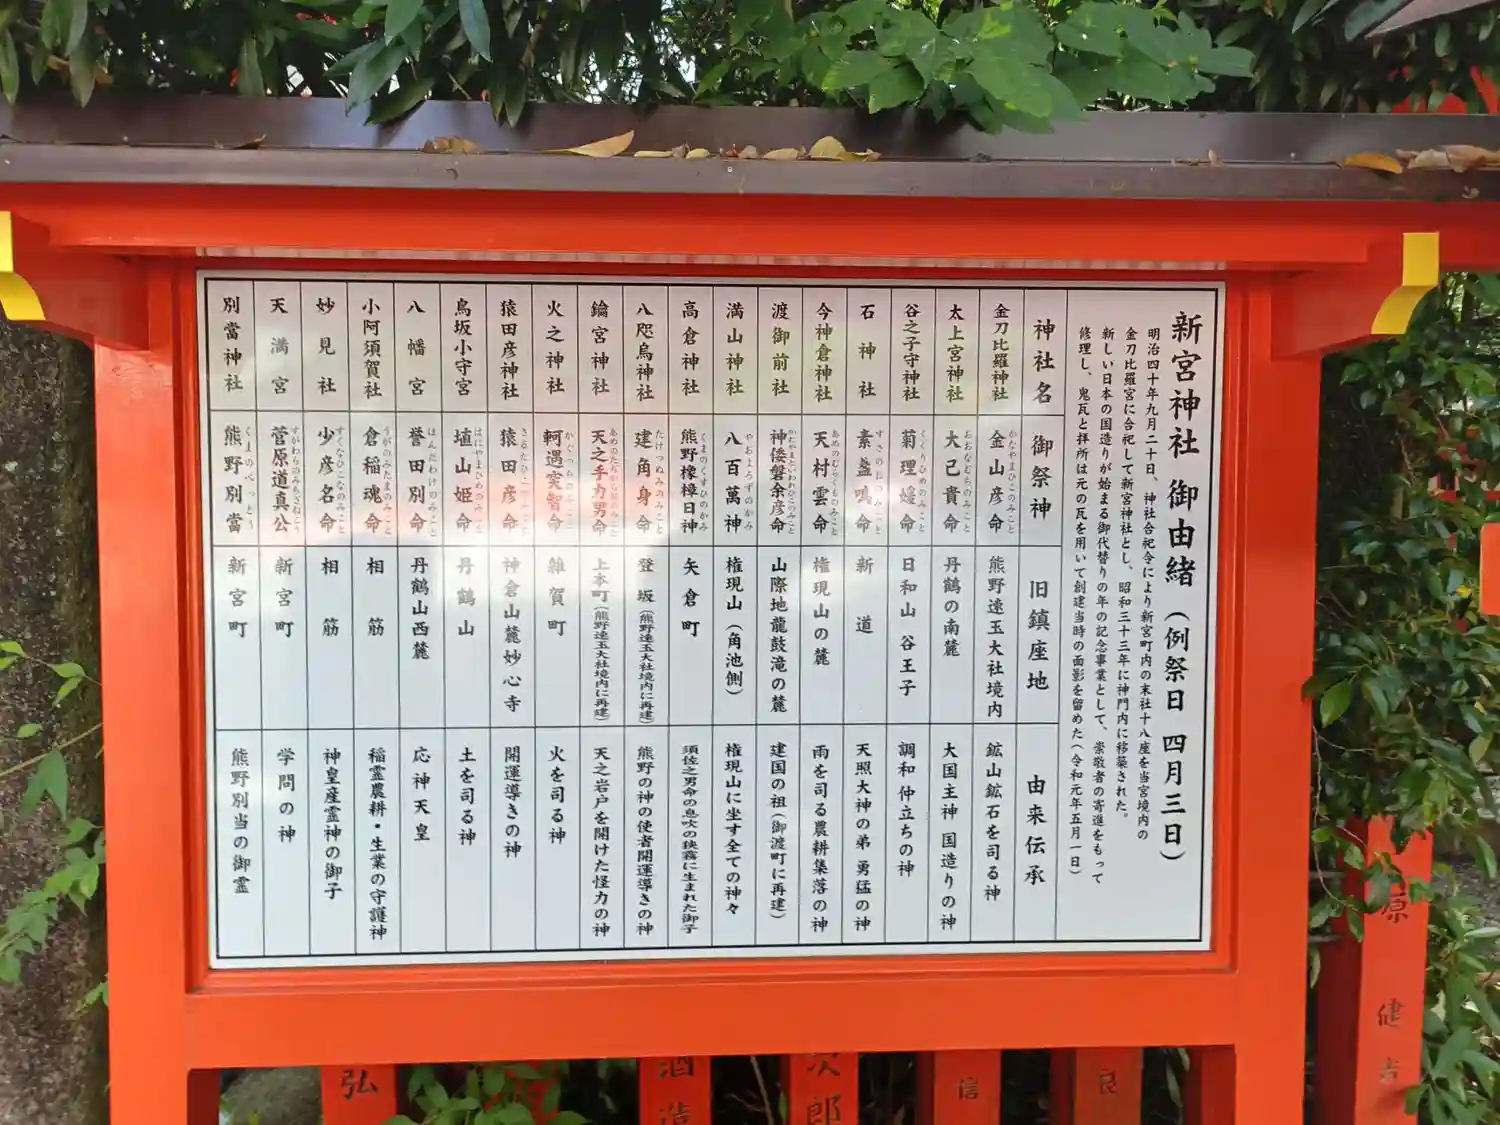 新宮神社 御由緒 (例祭日 四月三日)
明治四十年九月二十日、神社合祀令により新宮町内の末社十八座を当宮境内の
金刀比羅宮に合祀して新宮神社とし、昭和三十三年に神門内に移築された。
新しい日本の国造りが始まる御代替りの年の記念事業として、崇敬者の寄進をもって
修理し、鬼瓦と拝所は元の瓦を用いて創建当時の面影を留めた(令和元年五月一日)
神社名 御祭神 旧鎮座地 由来伝承
金刀比羅神社 金山彦命 熊野速玉大社境内 鉱山鉱石を司る神
太上宮神社 大己貴命 丹鶴の南麓 大国主神 国造りの神
谷之子守神社 菊理媛命 日和山 谷王子 調和 仲立ちの神
石神社 素盞鳴命 新道 天照大神の弟 勇猛の神
今神倉神社 天村雲命 権現山の麓 雨を司る農耕集落の神
渡御前社 神倭磐余彦命 山際地龍鼓滝の麓 建国の祖(御渡町に再建)
満山神社 八百萬神 権現山(角池側) 権現山に坐す全ての神々
高倉神社 熊野橡樟日神 矢倉町 須佐之男命の息吹の狭霧に生まれた御子
八咫烏神社 建角身命 登坂(熊野速玉大社境内に再建) 熊野の神の使者開運導きの神
鑰宮神社 天之手力男命 上本町(熊野速玉大社境内に再建) 天之岩戸を開けた怪力の神
火之神社 軻遇突智命 雑賀町 火を司る神
猿田彦神社 猿田彦命 神倉山麓妙心寺 開運導きの神
烏坂小守宮 埴山姫命 丹鶴山 土を司る神
八幡宮 誉田別命 丹鶴山西麓 応神天皇
小阿須賀社 倉稲魂命 相筋 稲霊農耕・生業の守護神
妙見社 少彦名命 相筋 神皇産霊神の御子
天満宮 菅原道真公 新宮町 学問の神
別當神社 熊野別當 新宮町 熊野別当の御霊
原 健吉
良
信
次郎
酒造
弘